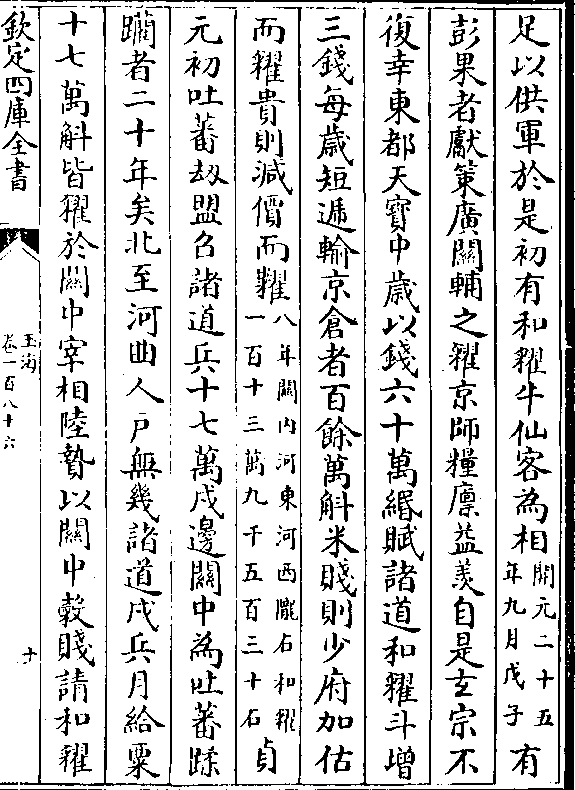 足以供軍於是初有和糴牛仙客為相開元二十五年九月戊子有
彭果者獻策廣關輔之糴京師糧廪益羨自是玄宗不
復幸東都天寶中歲以錢六十萬緡賦諸道和糴斗增
三錢每歲短遞輸京倉者百餘萬斛米賤則少府加估
而糴貴則減價而糶八年關内河東河西隴右和糴一百十三萬九千五百三十石貞
元初吐蕃刼盟召諸道兵十七萬戍邊關中為吐蕃蹂
躪者二十年矣北至河曲人戸無幾諸道戍兵月給粟
十七萬斛皆糴於關中宰相陸贄以關中穀賤請和糴
欽定四庫全書
玉海
卷一百八十六
十